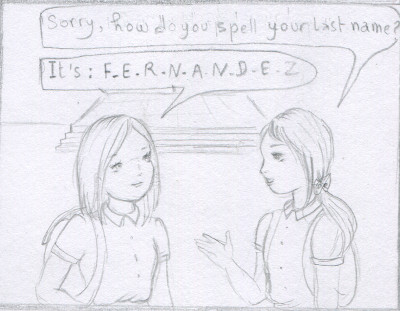 Sorry, how do you spell your last name?
It's: F-E-R-N-A-N-D-E-Z